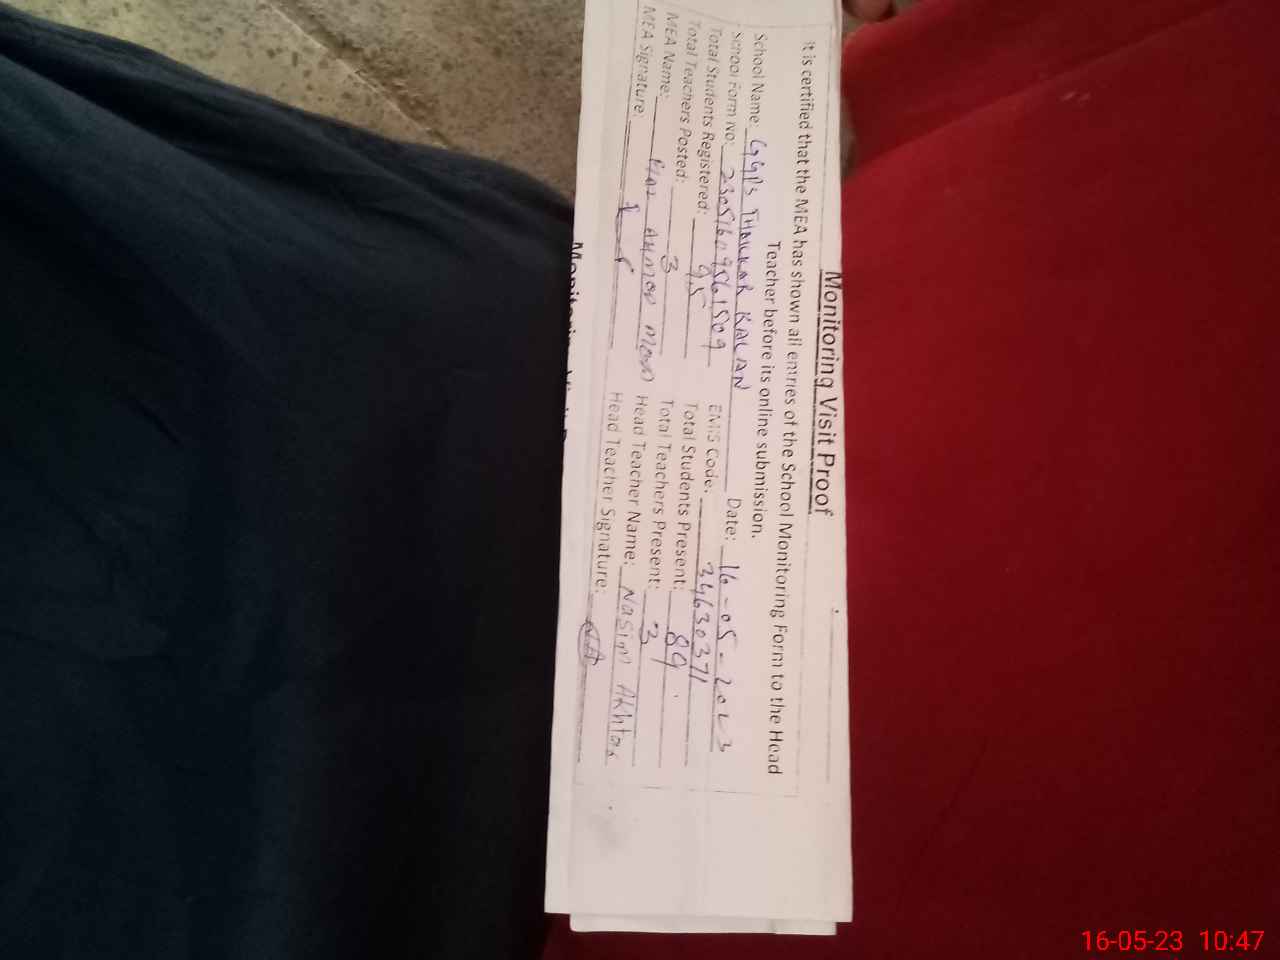 Monitoring Visit Proof
It is certified that the MEA has shown all entries of the School Monitoring Form to the Head
Teacher before its online submission.
School Name: GGPS THAKKAR KALAN Date: 16-05-2023
School Form No: 23051609561509 EMIS Code: 34630371
Total Students Registered: 95 Total Students Present: 89
Total Teachers Posted: 3 Total Teachers Present: 3
MEA Name: AHMAD Head Teacher Name: Nasim Akhtar
MEA Signature: Head Teacher Signature:
16-05-23 10:47